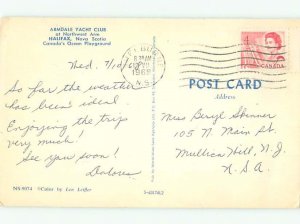 ARMDALE YACHT CLUB
at Northwest Arm
HALIFAX, Nova Scotia
Canada's Ocean Playground
Wed. 7/10/68
So far the weather
has been ideal
Enjoying the trip
very much!
See you soon!
Dolores
NS 9074
Color by Lee Leffler
S-48176-2
AM
1968
N.S.
CANADA
POST CARD
Address
Miss Beryl Skinner
105 N. Main St.
Mullica Hill, N.J.
U.S.A.